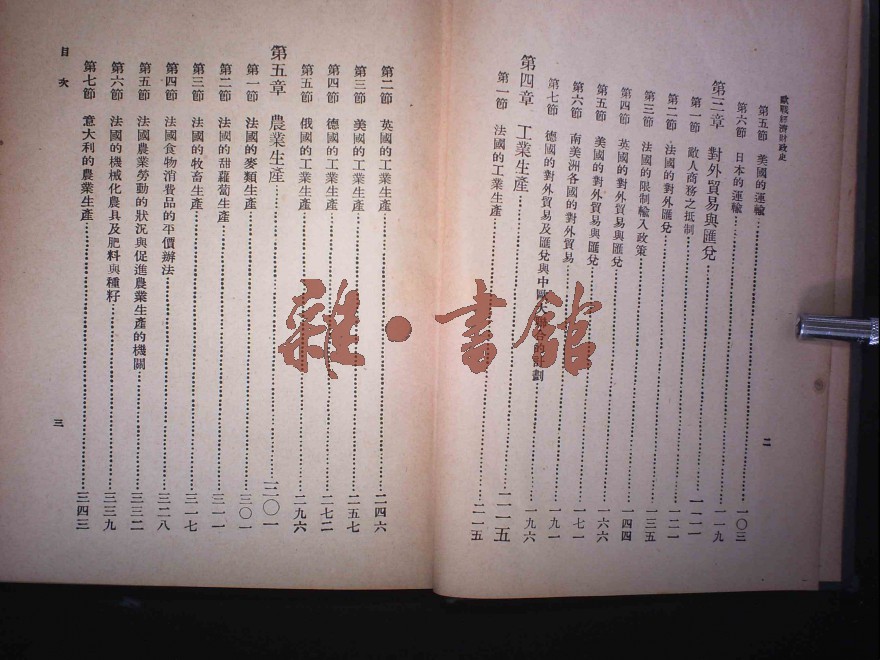 歐戰經濟財政史
第五節 美國的運輸……一〇三
第六節 日本的運輸……一一九
第三章 對外貿易與匯兌……一二一
第一節 敵人商務之抵制……一二一
第二節 法國的對外匯兌……一三五
第三節 法國的限制輸入政策……一四四
第四節 英國的對外貿易與匯兌……一六六
第五節 美國的對外貿易與匯兌……一七一
第六節 南美洲各國的對外貿易……一九一
第七節 德國的對外貿易及匯兌與中歐大聯合的計劃……一九六
第四章 工業生產……二一五
第一節 法國的工業生產……二一五
二
第二節 英國的工業生產……二四六
第三節 美國的工業生產……二五七
第四節 德國的工業生產……二七二
第五節 俄國的工業生產……二九六
第五章 農業生產……三〇一
第一節 法國的麥類生產……三〇一
第二節 法國的甜蘿蔔生產……三一一
第三節 法國的牧畜生產……三一七
第四節 法國食物消費品的平價辦法……三二八
第五節 法國農業勞動的狀況與促進農業生產的機關……三三二
第六節 法國的機械化農具及肥料與種籽……三三九
第七節 意大利的農業生產……三四三
目次
三
雜·書館